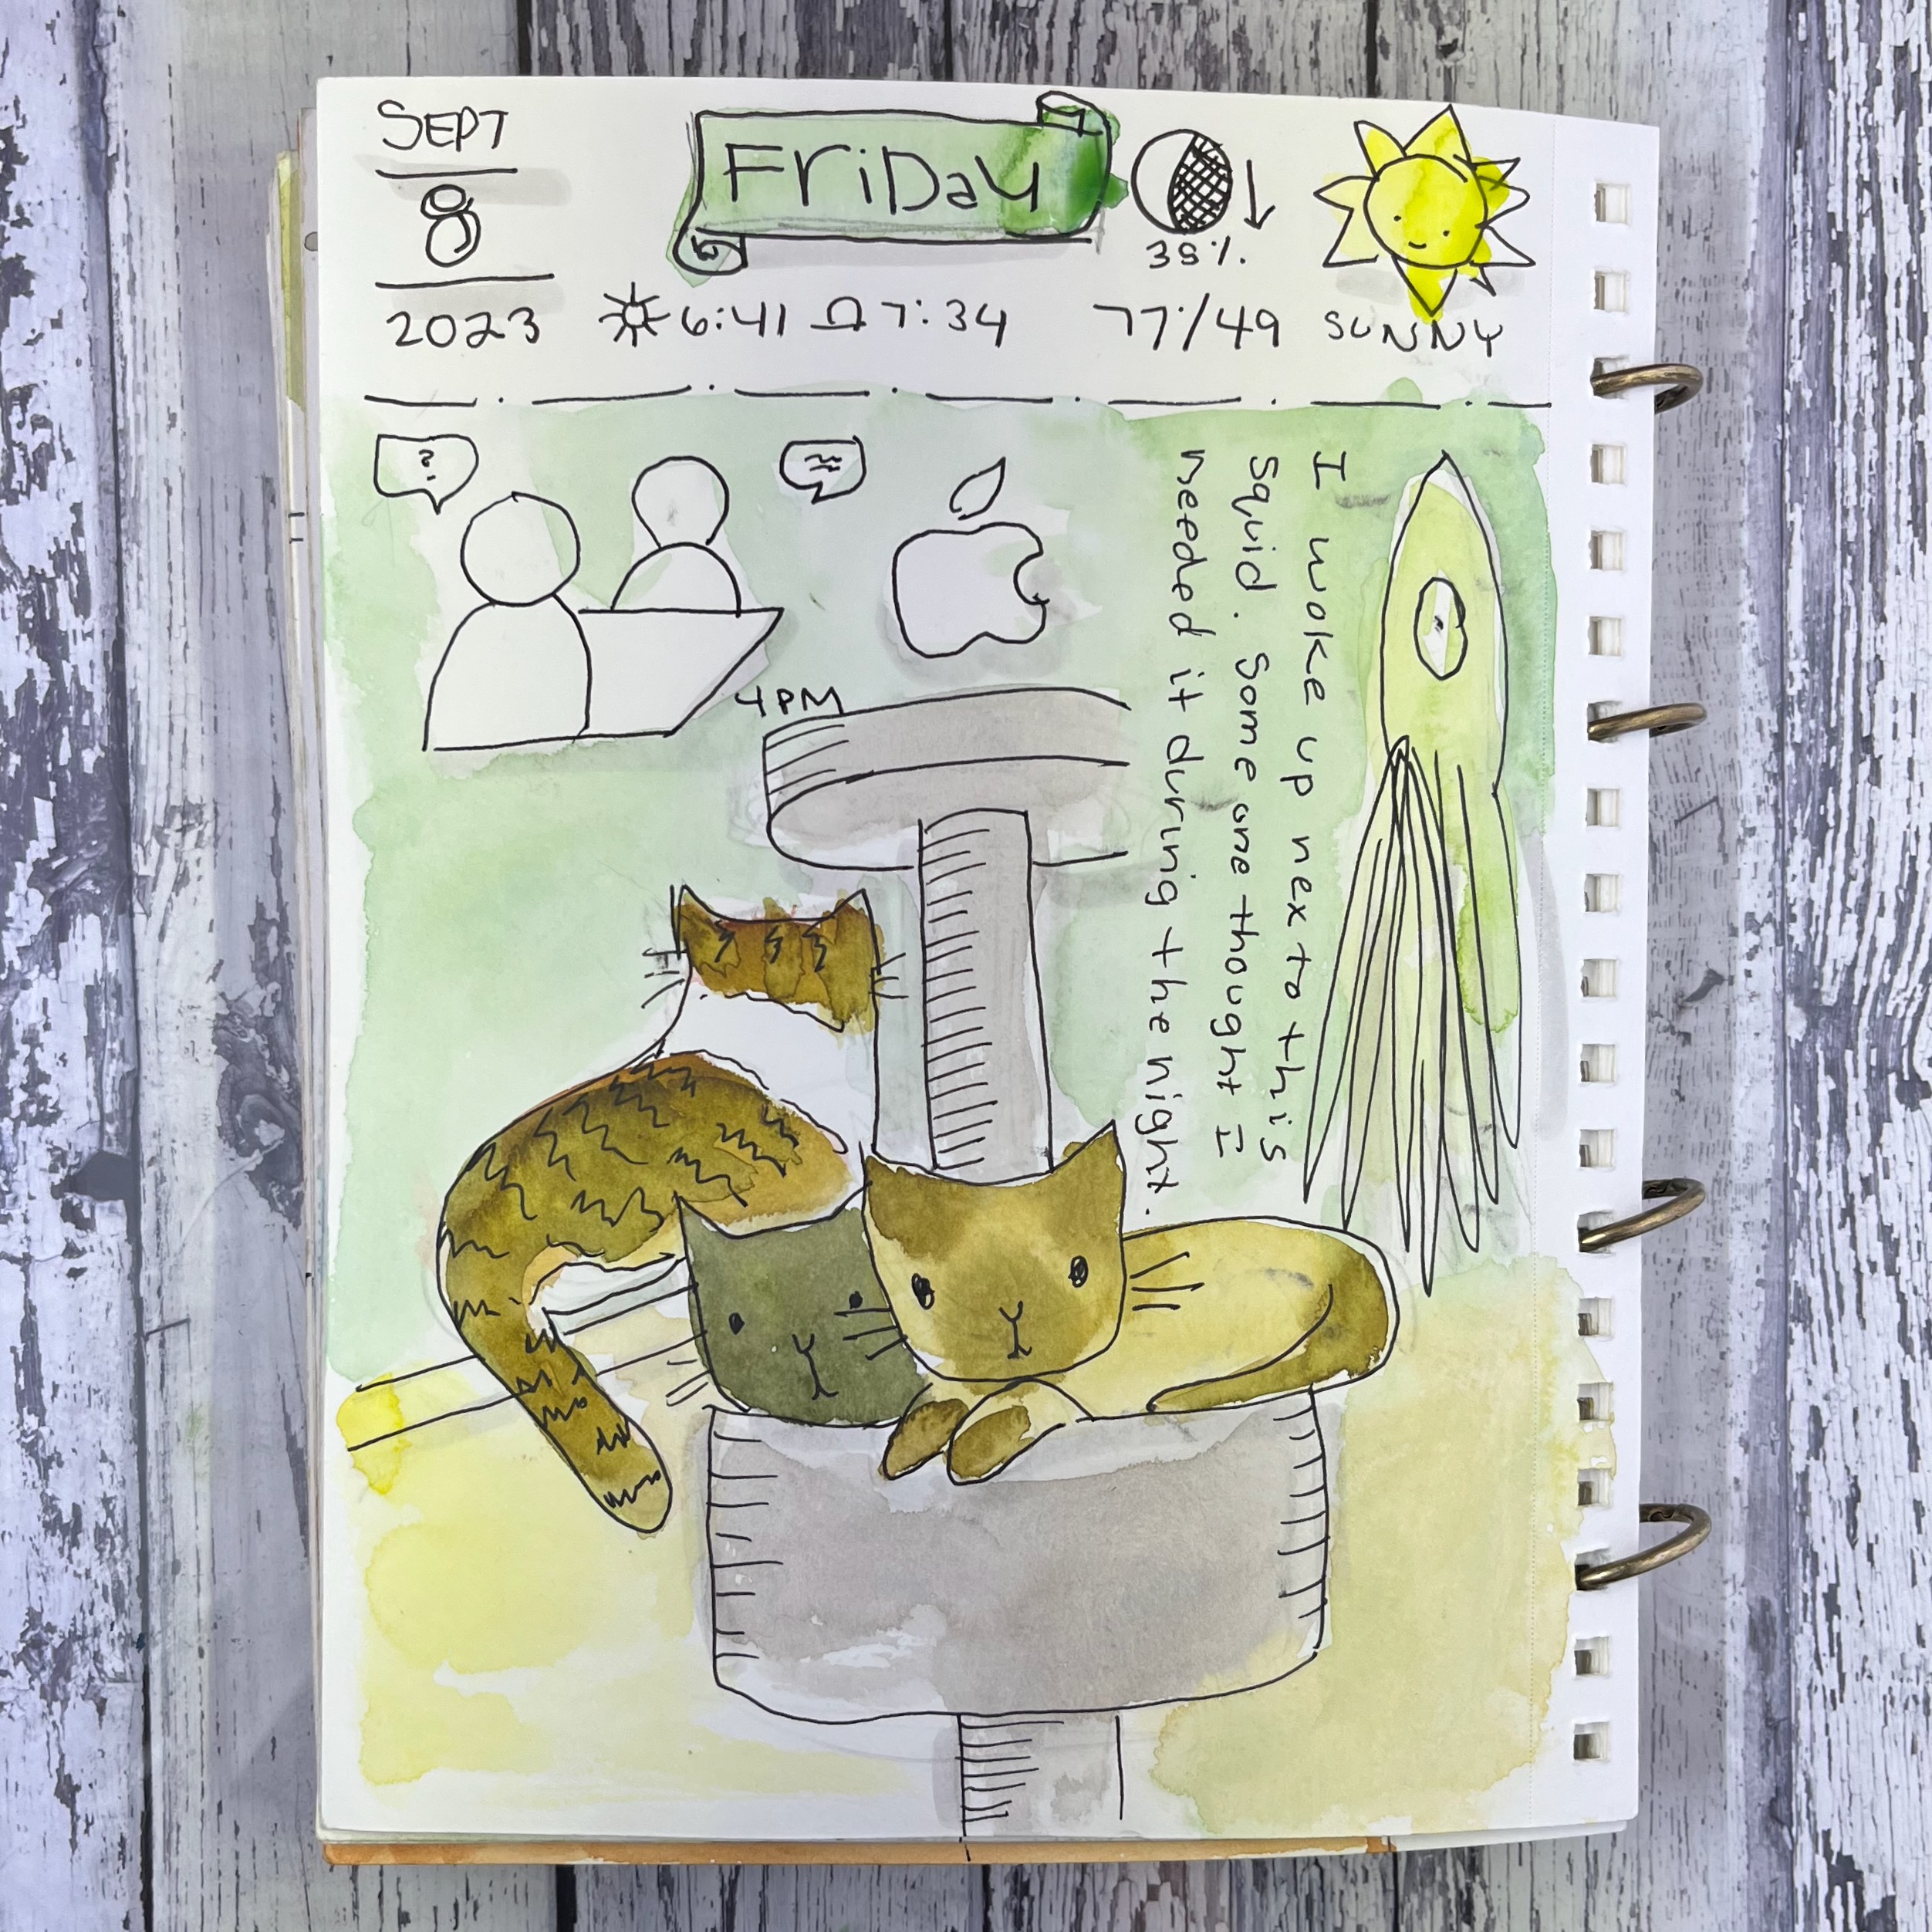 SEPT
8
2023
FRIDAY
38%
6:41 7:34
77/49
SUNNY
?
4PM
I woke up next to this
squid. Someone thought I
needed it during the night.